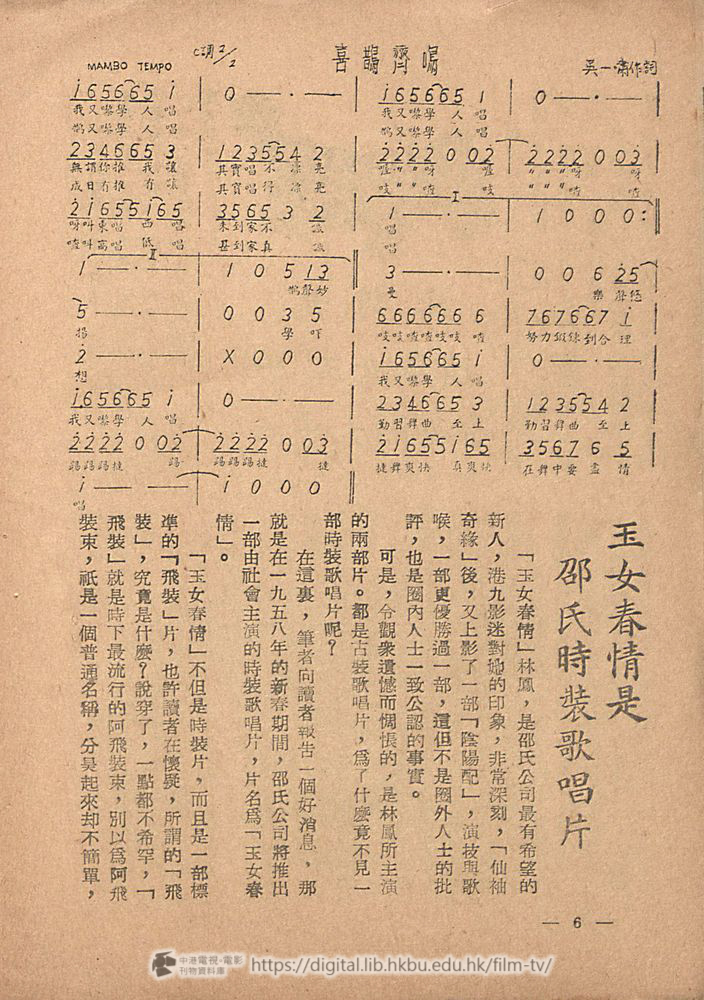 喜鵲齊唱
C調2/2
MAMBO TEMPO
吳一嘯作詞
i 6 5 6 6 6 5 i
0 — · —
i 6 5 6 6 6 5 1
0 — · —
我又嚟學 人 唱
我又嚟學 人 唱
鵲又嚟學 人 唱
鵲又嚟學 人 唱
2 3 4 6 6 5 3
1 2 3 5 5 4 2
2 2 2 2 0 0 2
2 2 2 2 0 0 3
2 1 6 5 5 i 6 5
3 5 6 5 3 2
1 — · —
1 0 0 0 :
1 — · —
1 0 5 1 3
3 — · —
0 0 6 2 5
鵲聲妙
曼
樂 聲悠
5 — · —
0 0 3 5
6 6 6 6 6 6 6
7 6 7 6 6 7 i
揚
學 吓
吱吱喳喳吱吱 喳
努力鍛鍊到合 理
2 — · —
X 0 0 0
i 6 5 6 6 5 i
0 — · —
想
我又嚟學 人 唱
i 6 5 6 6 5 i
0 — · —
2 3 4 6 6 5 3
1 2 3 5 5 4 2
我又嚟學 人 唱
勤習舞曲 至 上
勤習舞曲 至 上
2 2 2 2 0 0 2
2 2 2 2 0 0 3
2 i 6 5 5 i 6 5
3 5 6 7 6 5
踢踢踢撻 踢
踢踢踢撻 撻
撻舞爽快 真爽快
在舞中要盡 情
i — · —
i 0 0 0
唱
玉女春情是
邵氏時裝歌唱片
「玉女春情」林鳳,是邵氏公司最有希望的
新人,港九影迷對她的印象,非常深刻,「仙袖
奇緣」後,又上影了一部「陰陽配」,演技與歌
喉,一部更優勝過一部,這但不是圈外人士的批
評,也是圈內人士一致公認的事實。
可是,令觀衆遺憾而惆悵的,是林鳳所主演
的兩部片。都是古裝歌唱片,爲了什麼竟不見一
部時裝歌唱片呢?
在這裏,筆者向讀者報告一個好消息,那
就是在一九五八年的新春期間,邵氏公司將推出
一部由社會主演的時裝歌唱片,片名爲「玉女春
情」。
「玉女春情」不但是時裝片,而且是一部標
準的「飛裝」片,也許讀者在懷疑,所謂的「飛
裝」,究竟是什麼?說穿了,一點都不希罕,「
飛裝」就是時下最流行的阿飛裝束,別以爲阿飛
裝束,祇是一個普通名稱,分吳起來却不簡單,
— 6 —
中港電視·電影
刊物資料庫
https://digital.lib.hkbu.edu.hk/film-tv/